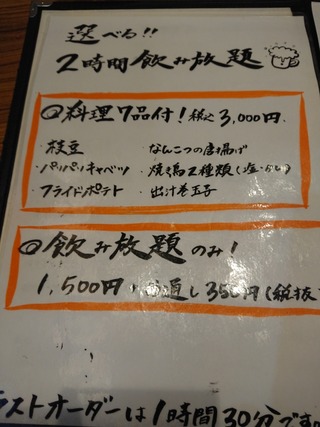 選べる!!
2時間飲み放題
◎料理7品付!税込3,000円
・枝豆 ・なんこつの唐揚げ
・パリパリキャベツ ・焼き鳥2種類(塩・タレ)
・フライドポテト ・出汁巻玉子
◎飲み放題のみ!
1,500円 通し350円(税抜
ラストオーダーは1時間30分です